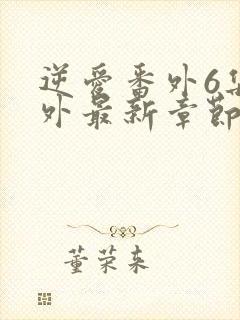 逆爱番外6集
外最新章節
董荣来